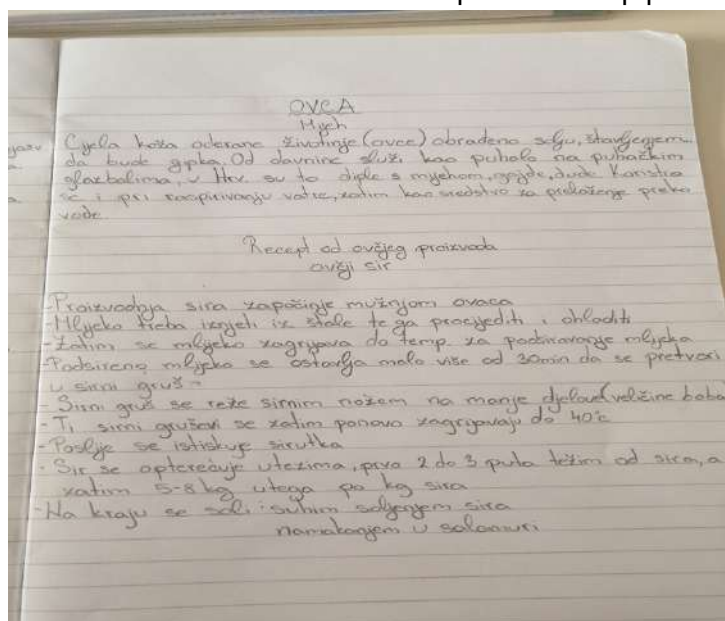 OVCA
Mjeh
Cjela koža oderane životinje (ovce) obrađena solju, štavljenjem
da bude gipka. Od davnine služi kao puhalo na puhačkim
glazbalima, u Hrv. su to diple s mjehom, gajde, dude. Koristio
se i pri raspirivanju vatre, zatim kao sredstvo za prelaženje preko
vode.
Recept od ovčjeg proizvoda
ovčji sir
- Proizvodnja sira započinje mužnjom ovaca
- Mlijeko treba iznjeti iz štale te ga procijediti i ohladiti
- Zatim se mlijeko zagrijava do temp. za podsiravanje mlijeka
- Podsireno mlijeko se ostavlja malo više od 30min da se pretvori
u sirni gruš -
- Sirni gruš se reže sirnim nožem na manje djelove (veličine boba
- Ti sirni gruševi se zatim ponovo zagrijavaju do 40°c
- Poslije se istiskuje sirutka
- Sir se opterećuje utezima, prvo 2 do 3 puta težim od sira, a
zatim 5-8 kg utega po kg sira
- Na kraju se soli: suhim soljenjem sira
namakanjem u salamuri